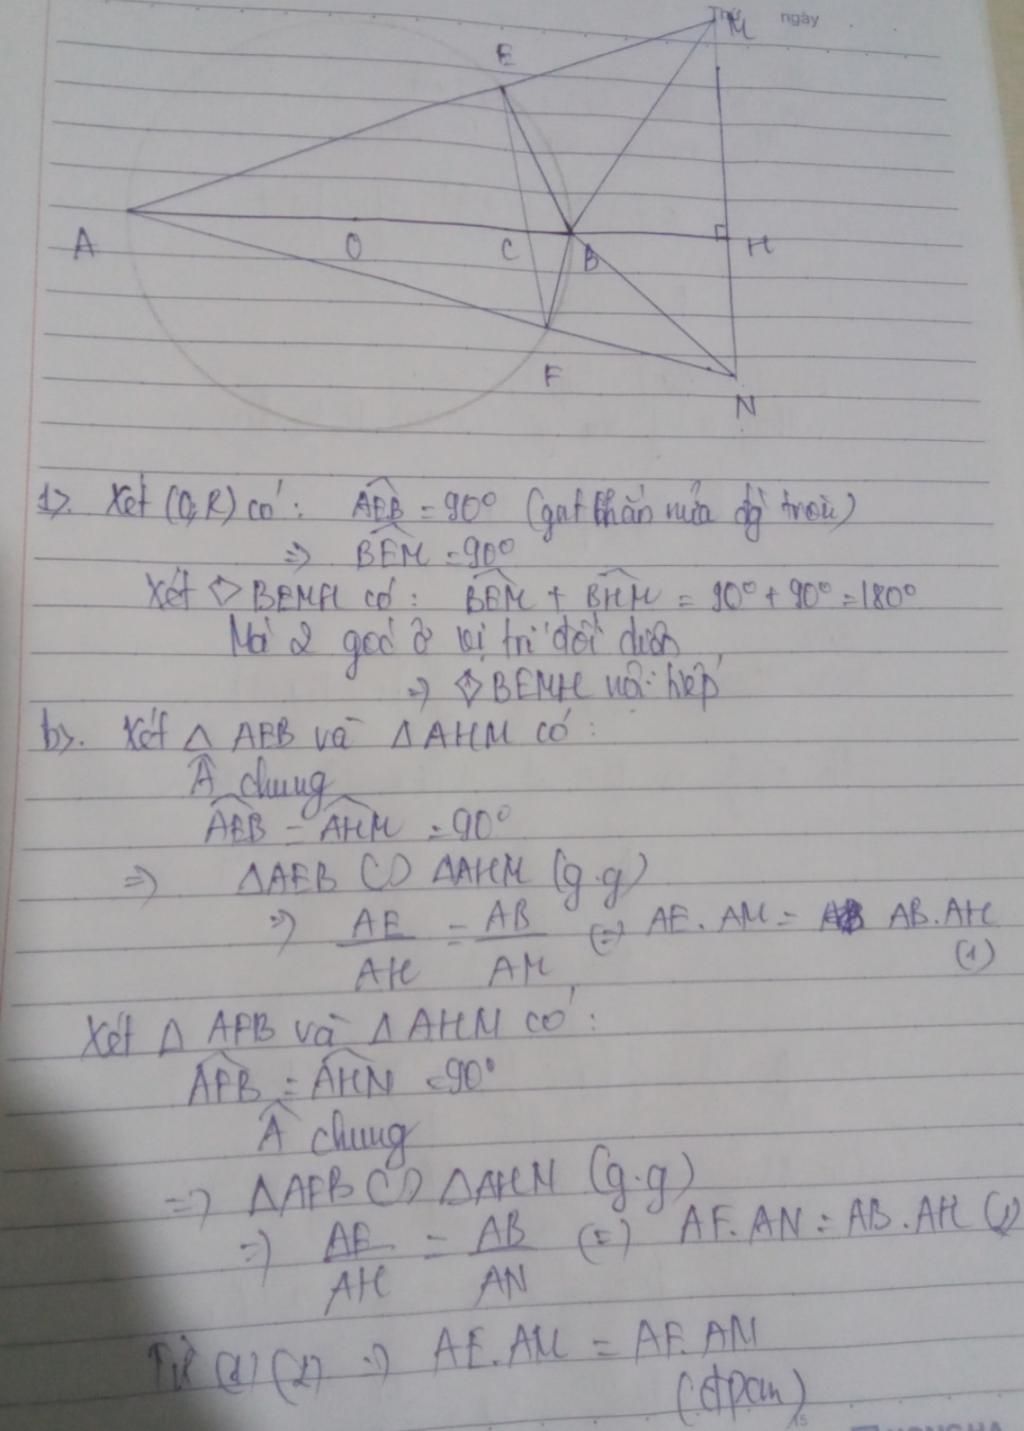 Thứ ngày
M
E
A O C B H
F
N
1>. Xét (O,R) có: AEB = 90° (gnt chắn nửa đg tròn)
=> BEM = 90°
Xét ◇ BEMH có: BEM + BHM = 90° + 90° = 180°
Mà 2 góc ở vị trí đối diện
=> ◇ BEMH nội tiếp
b>. Xét △ AEB và △ AHM có:
Â chung
AEB = AHM = 90°
=> △AEB ∽ △AHM (g.g)
=> AE/AH = AB/AM <=> AE. AM = AB. AH
(1)
Xét △ AFB và △ AHN có:
AFB = AHN = 90°
Â chung
=> △AFB ∽ △AHN (g.g)
=> AF/AH = AB/AN <=> AF. AN = AB. AH (2)
Từ (1) (2) => AE. AM = AF. AN
(đpcm)